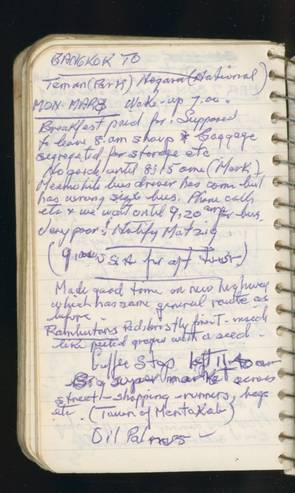 BANGKOK TO
Taman (Park) Negara (National)
MON. MAR 3 Wake-up 7.00.
Breakfast paid for. Supposed
to leave 8. am sharp & baggage
segregated for storage etc
No guide until 8:15 came (Mark)
Meanwhile bus driver has come but
has wrong size bus. Phone calls
etc & we wait until 9,20 for bus.
Very poor! Notify
for aft
Made good time on new highway
which has same general route as
before.
Rambutans Red. bristly fruit - much
like peeled grapes with a seed.
Coffee Stop
Big super market across
street - shopping - runners, bags
etc. (Town of Mentakab)
Oil Palms -